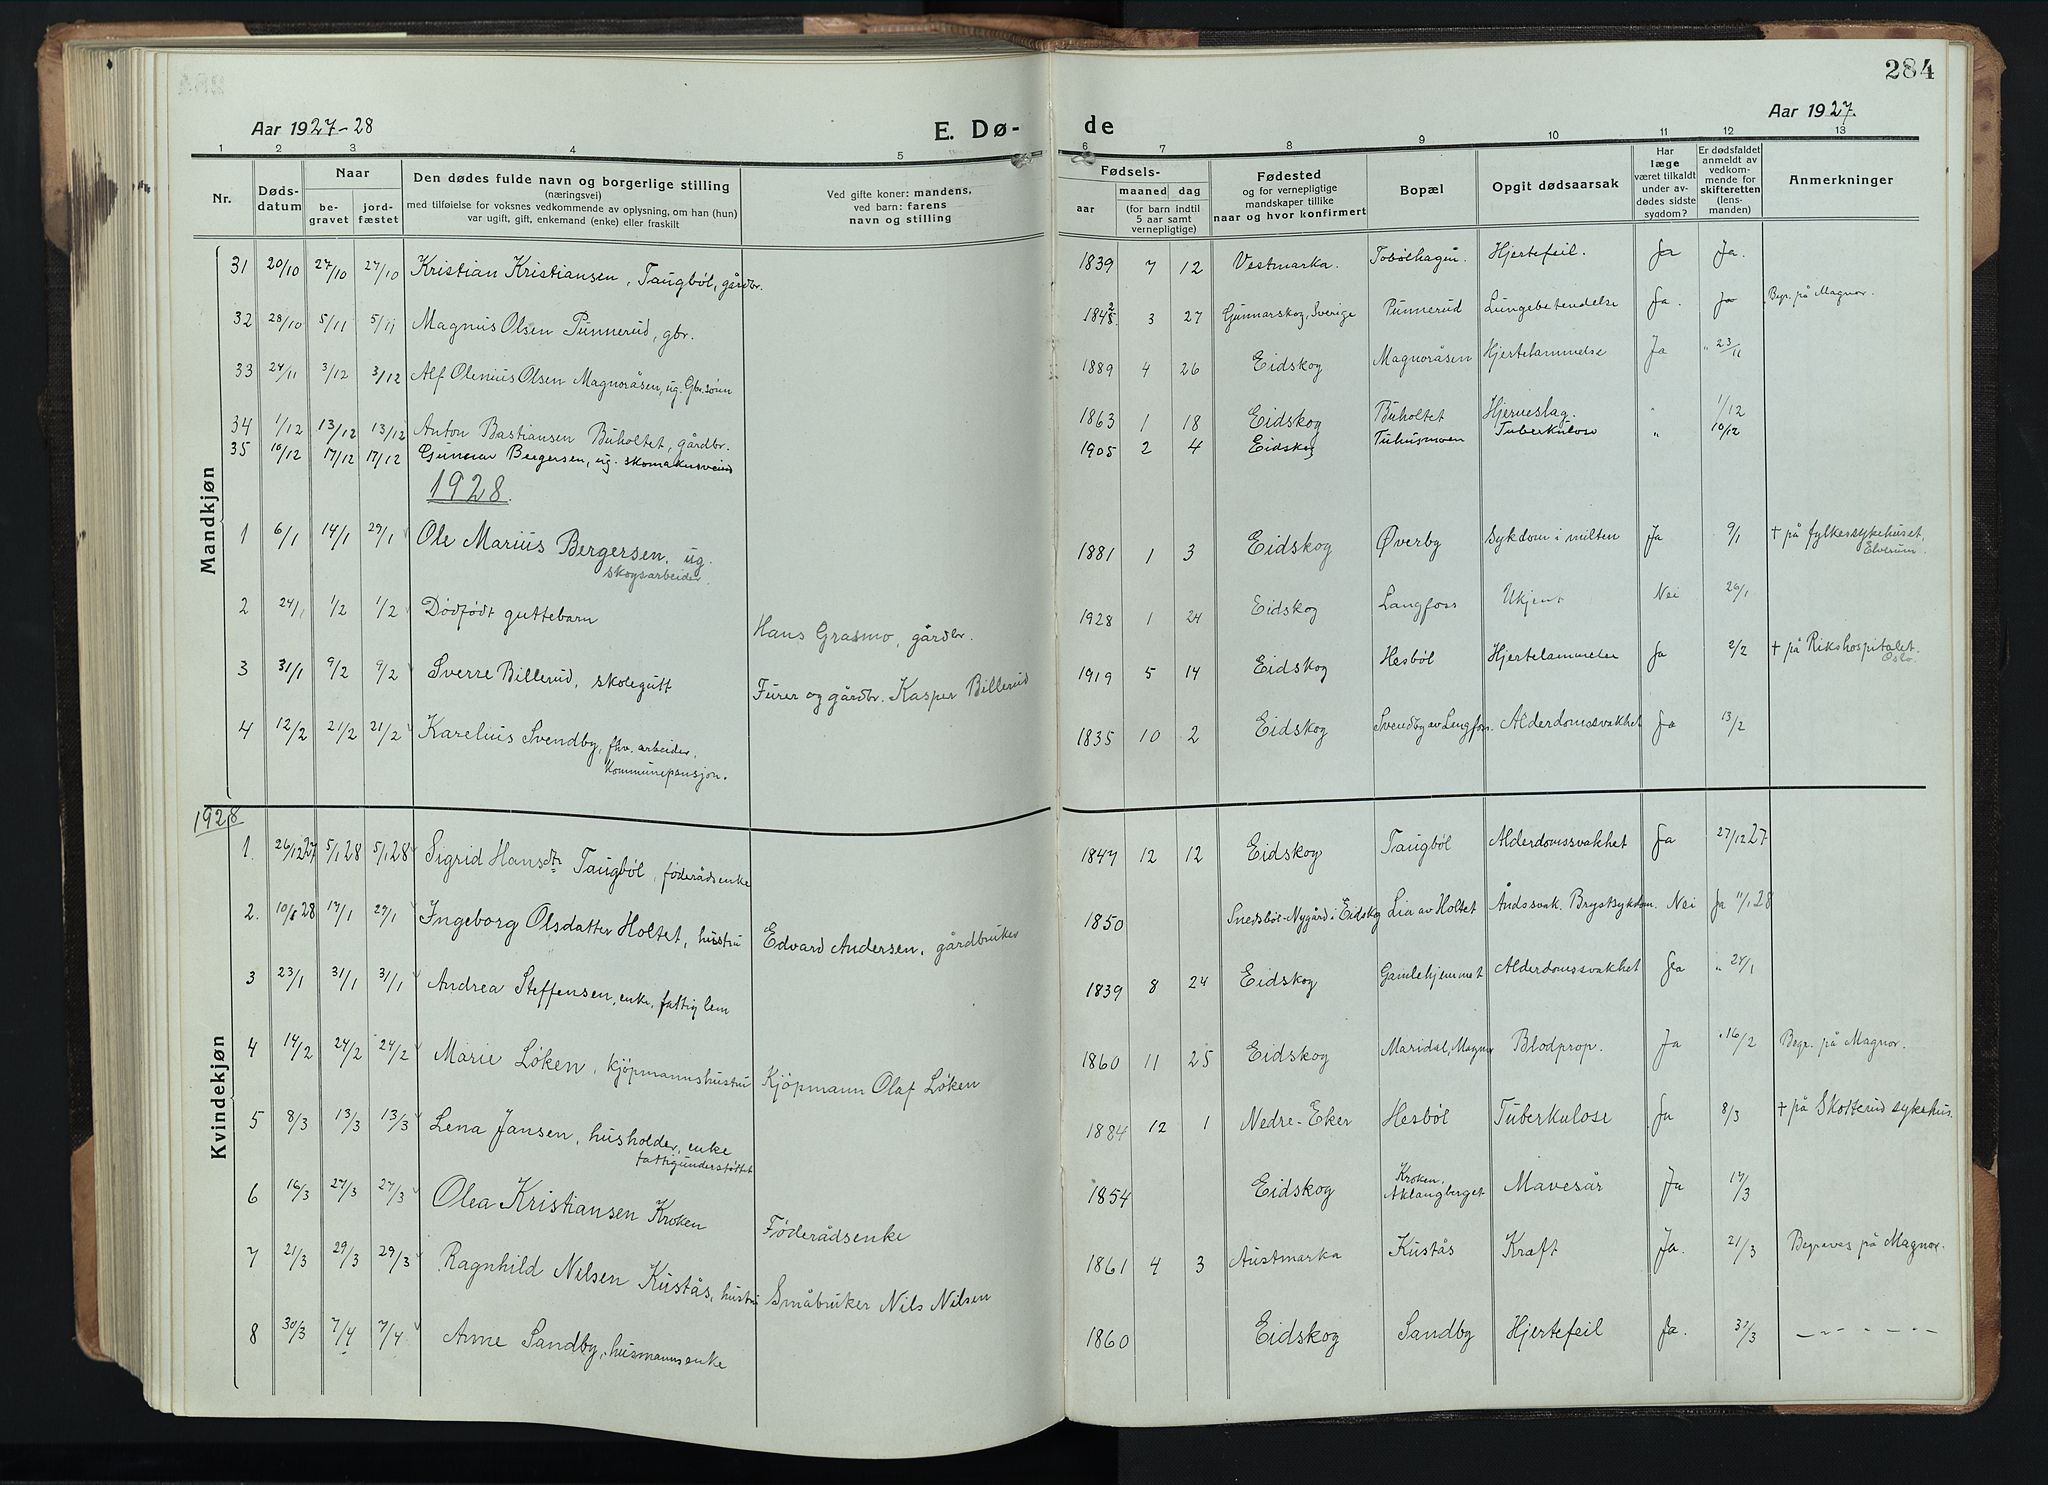 284
Aar 1927-28
E. Dø-
de
Aar 1927.
1 2 3 4 5 6 7 8 9 10 11 12 13
Nr.
Døds-
datum
Naar
be-
gravet
jord-
fæstet
Den dødes fulde navn og borgerlige stilling
(næringsvei)
med tilføielse for voksnes vedkommende av oplysning, om han (hun)
var ugift, gift, enkemand (enke) eller fraskilt
Ved gifte koner: mandens,
ved barn: farens
navn og stilling
Fødsels-
aar
maaned
dag
(for barn indtil
5 aar samt
vernepligtige)
Fødested
og for vernepligtige
mandskaper tillike
naar og hvor konfirmert
Bopæl
Opgit dødsaarsak
Har
læge
været tilkaldt
under av-
dødes sidste
sygdom?
Er dødsfaldet
anmeldt av
vedkom-
mende for
skifteretten
(lens-
manden)
Anmerkninger
Mandkjøn
31 20/10 27/10 27/10 Kristian Kristiansen, Taugbøl, gårdbr. 1839 7 12 Vestmarka. Tobølhagen. Hjertefeil. Ja Ja.
32 28/10 5/11 5/11 Magnus Olsen Punnerud, gbr. 3 27 Gunnarskog, Sverige Punnerud Lungebetendelse Ja. Ja Begr. på Magnor.
33 24/11 3/12 3/12 Alf Olenius Olsen Magnoråsen, ug. Gbr.sønn 1889 4 26 Eidskog Magnoråsen Hjertelammelse Ja " 23/11
34 1/12 13/12 13/12 Anton Bastiansen Buholtet, gårdbr. 1863 1 18 Eidskog Buholtet Hjerneslag. " 1/12
35 10/12 17/12 17/12 Gunnar Bergersen, ug. skomakersvend 1905 2 4 Eidskog Tuhusmoen Tuberkulose " 10/12
1928.
1 6/1 14/1 29/1 Ole Marius Bergersen, ug. 1881 1 3 Eidskog Øverby Sykdom i milten Ja 9/1 + på fylkessykehuset,
skogsarbeider. Elverum.
2 24/1 1/2 1/2 Dødfødt guttebarn Hans Grasmo, gårdbr. 1928 1 24 Eidskog Langfoss Ukjent Nei 26/1
3 31/1 9/2 9/2 Sverre Billerud, skolegutt Furer og gårdbr. Kasper Billerud 1919 5 14 Eidskog Hesbøl Hjertelammelse Ja 2/2 + på Rikshospitalet.
Oslo.
4 12/2 21/2 21/2 Karelius Svendby, fhv. arbeider, 1835 10 2 Eidskog Svendby av Langfoss. Alderdomssvakhet Ja 13/2
Kommunepensjon.
1928
Kvindekjøn
1. 26/12 27 5/1 28 5/1 28 Sigrid Hansdtr Taugbøl, føderådsenke 1847 12 12 Eidskog Taugbøl Alderdomssvakhet Ja 27/12 27
2. 28 17/1 29/1 Ingeborg Olsdatter Holtet, hustru Edvard Andersen, gårdbruker 1850 Snedsbøl-Nygård i Eidskog Lia av Holtet Åndssvak. Brystsykdom. Nei Ja 11/1 28
3 23/1 31/1 31/1 Andrea Steffensen, enke, fattiglem 1839 8 24 Eidskog Gamlehjemmet Alderdomssvakhet Ja " 24/1
4 14/2 24/2 24/2 Marie Løken, kjøpmannshustru Kjøpmann Olaf Løken 1860 11 25 Eidskog Maridal, Magnor Blodprop. Ja " 16/2 Begr. på Magnor.
5 8/3 13/3 13/3 Lena Jansen, husholder, enke 1884 12 1 Nedre-Eker Hesbøl Tuberkulose Ja 8/3 + på Skotterud sykehus.
fattigunderstøttet
6 16/3 27/3 27/3 Olea Kristiansen Kroken Føderådsenke 1854 Eidskog Kroken, Aklangberget Mavesår Ja 17/3
7 21/3 29/3 29/3 Ragnhild Nilsen Kustås, hustru Småbruker Nils Nilsen 1861 4 3 Austmarka Kustås Kræft Ja. 21/3 Begraves på Magnor.
8 30/3 7/4 7/4 Anne Sandby, husmannsenke 1860 Eidskog Sandby Hjertefeil Ja. 31/3 — " — " —